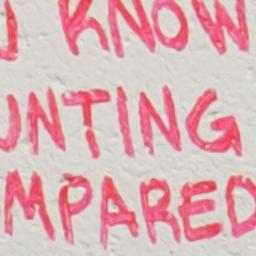 U KNOW
UNTING
MPARED